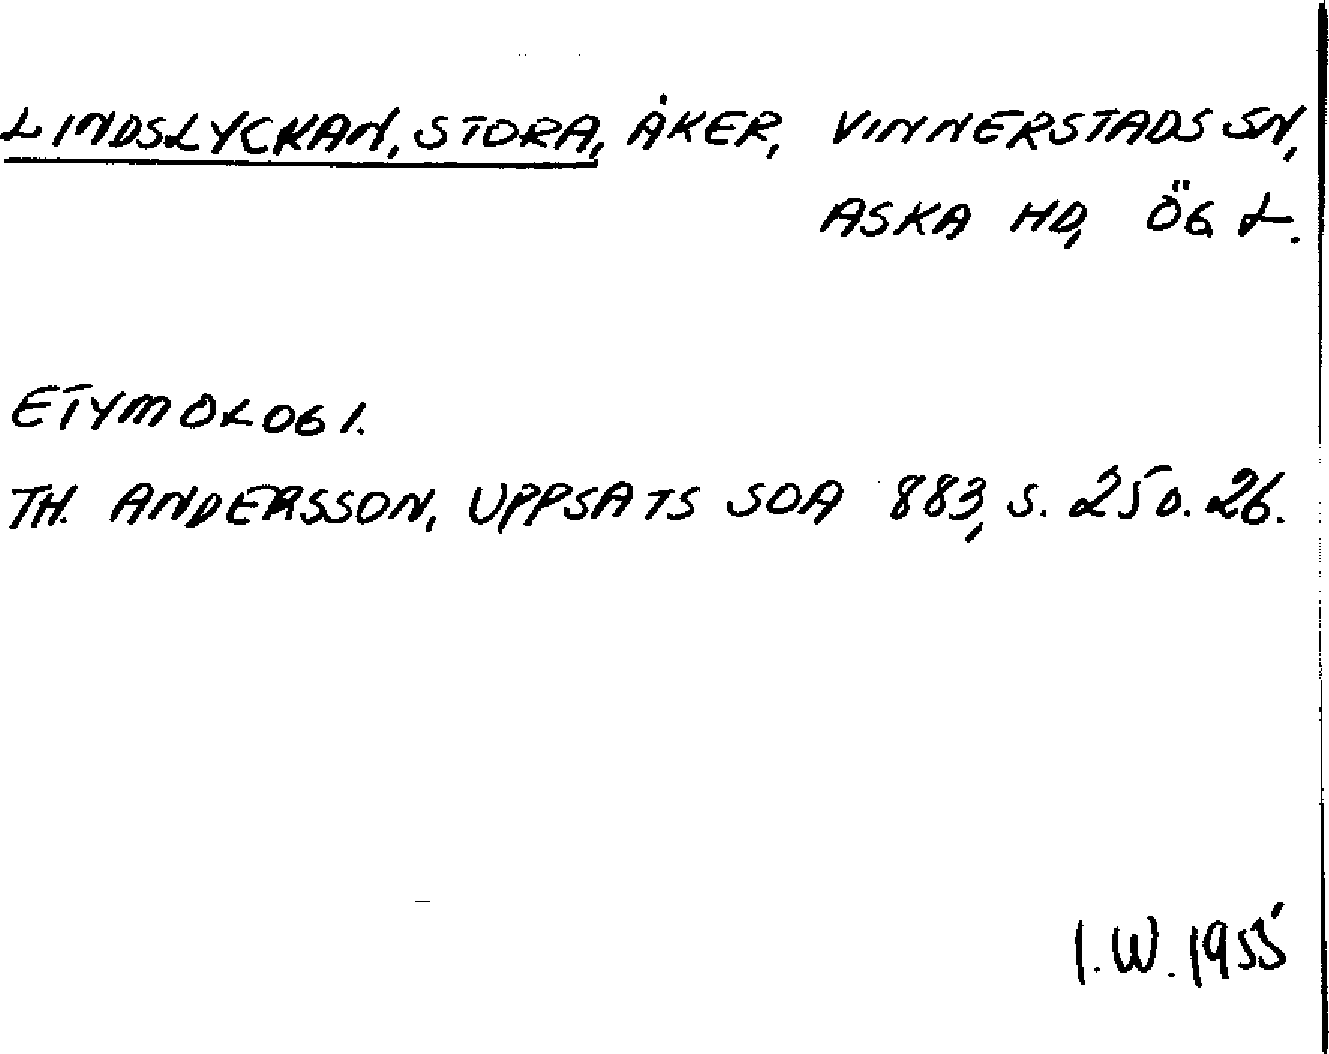 LINDSLYCKAN, STORA, ÅKER, VINNERSTADS SN,
ASKA HD, ÖGL.
ETYMOLOGI.
TH. ANDERSSON, UPPSATS SOA 883, S. 25 O. 26.
I.W. 1955